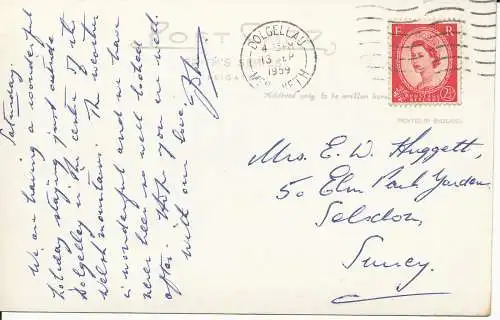 POST CARD
DOLGELLAU
4 15 PM
13 SEP
1959
MERIONETH
Address only to be written here
PRINTED IN ENGLAND
E R
2½D
Saturday.
We are having a wonderful
holiday staying just outside
Dolgelley in the centre of the
Welsh mountains. The weather
is wonderful and we have
never been so well looked
after. Hope you are well
With our love
Mrs. E. W. Huggett,
50 Elm Park Gardens
Selsdon,
Surrey.